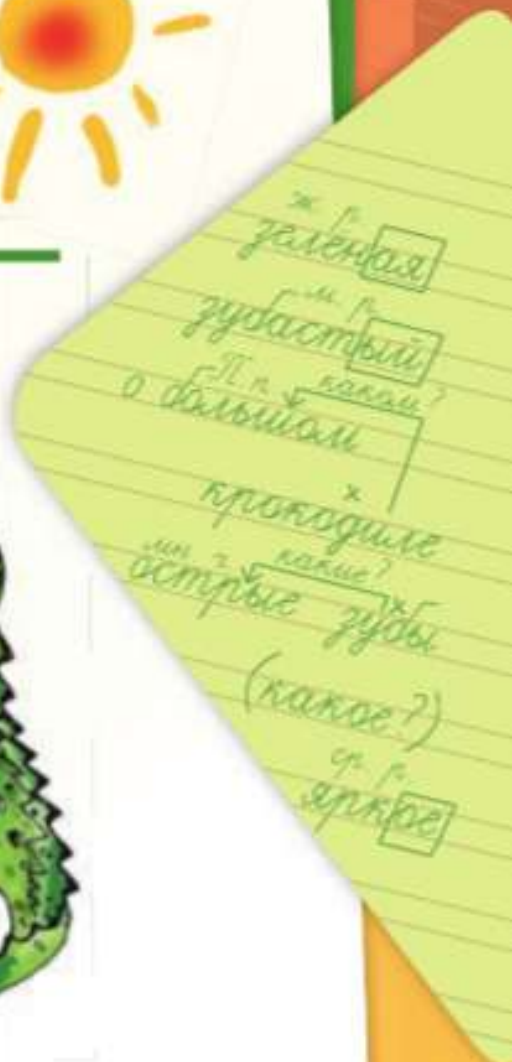 ж р.
зелёная
м. р.
зубастый
П. п. каком?
о большом
х
крокодиле
мн. ч. какие?
х
острые зубы
(какое?)
ср. р.
яркое